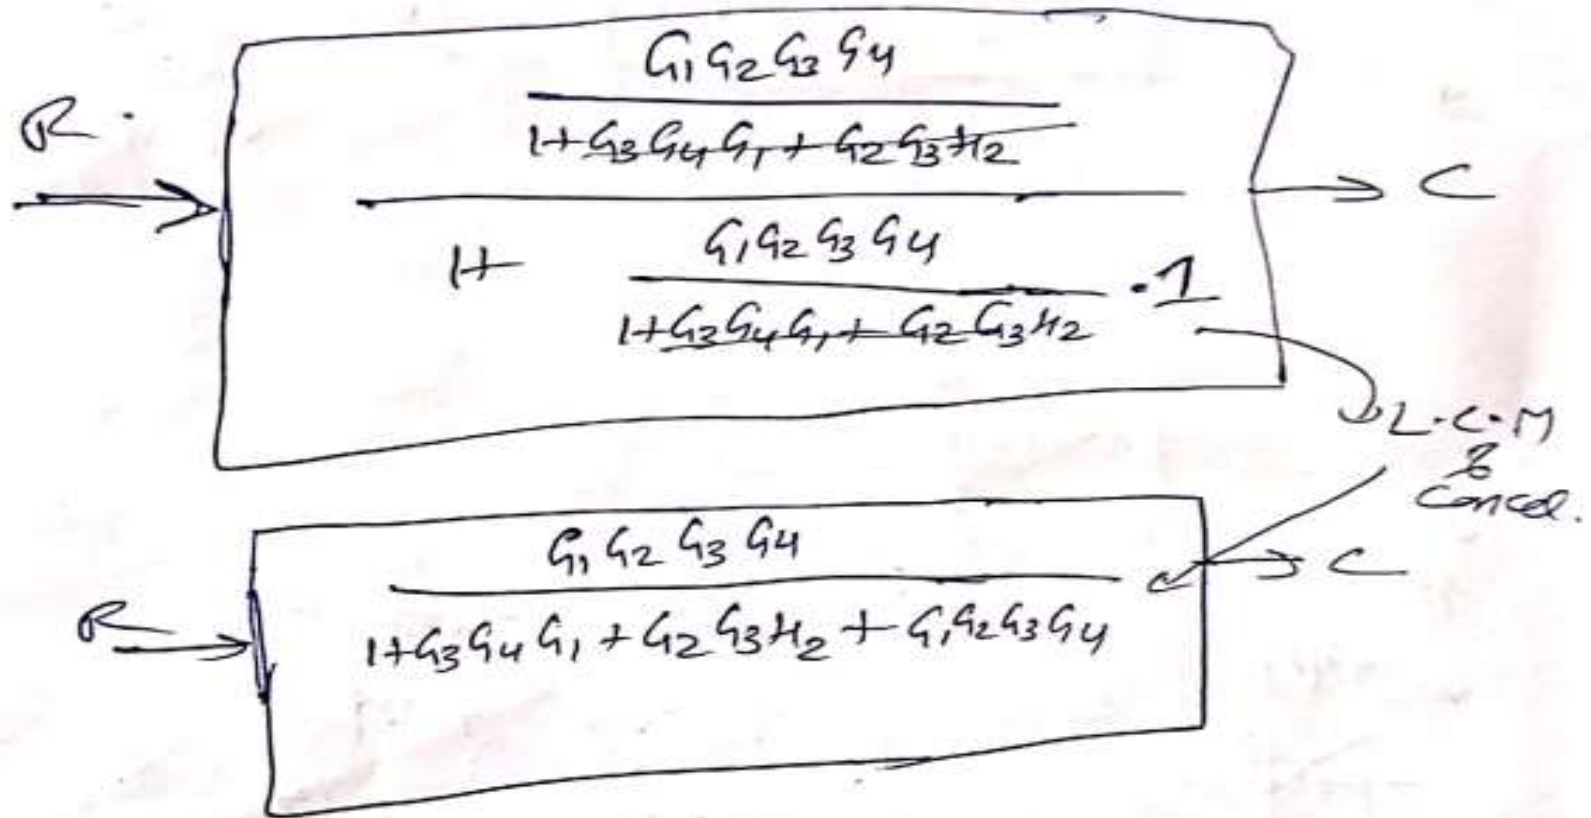 G1 G2 G3 G4
R.
1+G3 G4 G1 + G2 G3 H2
C
G1 G2 G3 G4
1+
. 1
1+G3 G4 G1 + G2 G3 H2
L.C.M
&
Cancel.
G1 G2 G3 G4
C
R
1+G3 G4 G1 + G2 G3 H2 + G1 G2 G3 G4